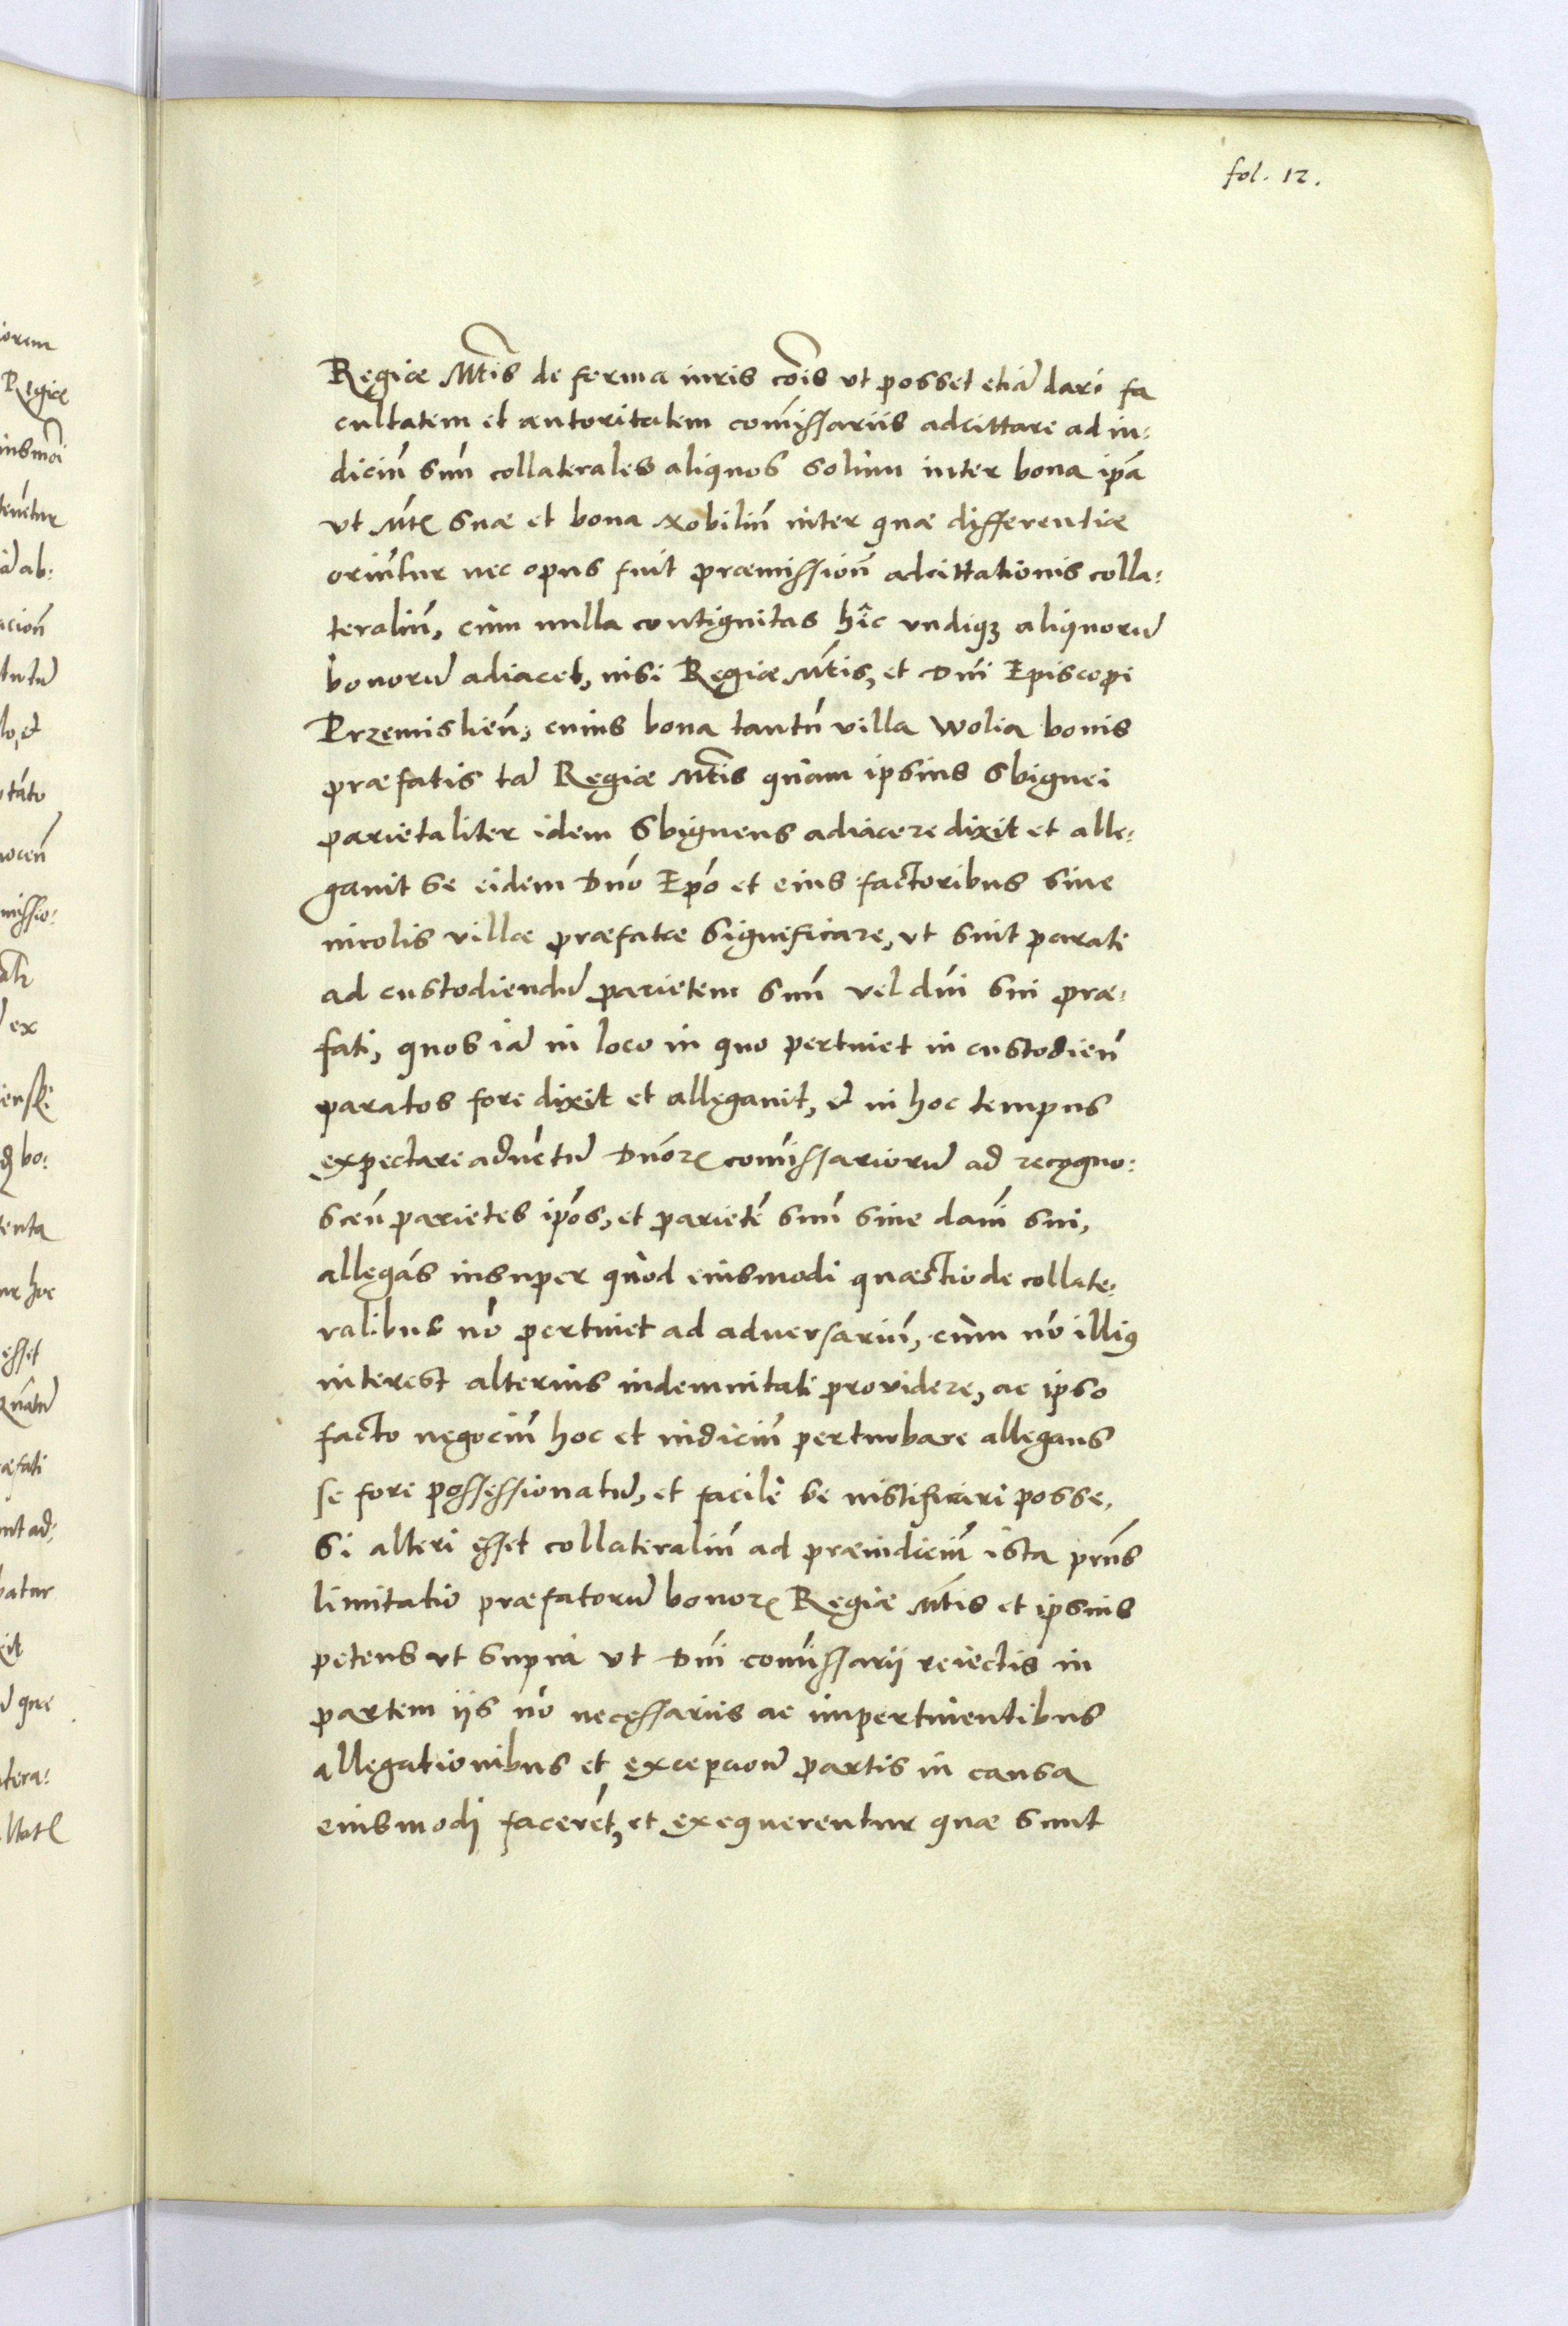 fol. 12.
Regiæ Mt̄is de forma iuris cōis vt posset etiā dari fa
cultatem et autoritatem com̄issariis adcittare ad iu:
diciū suū collaterales aliquos solùm inter bona ip̄a
vt Mt̄ꝭ suæ et bona Nobiliū inter quæ differentiæ
oriūtur nec opus fuit præmissioñ adcittationis colla:
teraliū, cùm nulla contiguitas hîc vndiqꝫ aliquorū
bonorū adiacet, nisi Regiæ Mt̄is, et Dn̄i Episcopi
Przemislieñ, cuius bona tantū villa Wolia bonis
præfatis tā Regiæ Mt̄is quàm ipsius Sbignei
parietaliter idem Sbigneus adiacere dixit et alle:
gauit se eidem Dn̄o Ep̄o et eius factoribus siue
incolis villæ præfatæ significare, vt sint parati
ad custodiendū parietem suū vel dn̄i sui præ:
fati, quos iā in loco in quo pertinet in custodieñ
paratos fore dixit et allegauit, & in hoc tempus
expectare aduētū Dn̄oꝝ com̄issariorū ad recogno:
sceñ parietes ip̄os, et parietē suū siue dom̄i sui,
allegās insuper quòd eiusmodi quæstio de collate:
ralibus nō pertinet ad aduersariū, cùm nō illiꝰ
interest alterius indemnitati providere, ac ipso
facto negociū hoc et iudiciū perturbare allegans
se fore possessionatū, et facilè se iustificari posse,
si alteri esset collateraliū ad præiudiciū ista prn̄s
limitatio præfatorū bonoꝝ Regiæ Mt̄is et ipsius
petens vt suprà vt Dn̄i com̄issarij reiectis in
partem ijs nō necessariis ac impertinentibus
allegationibus et excepcioñ partis in causa
eiusmodj facerēt, et exequerentur quæ sunt